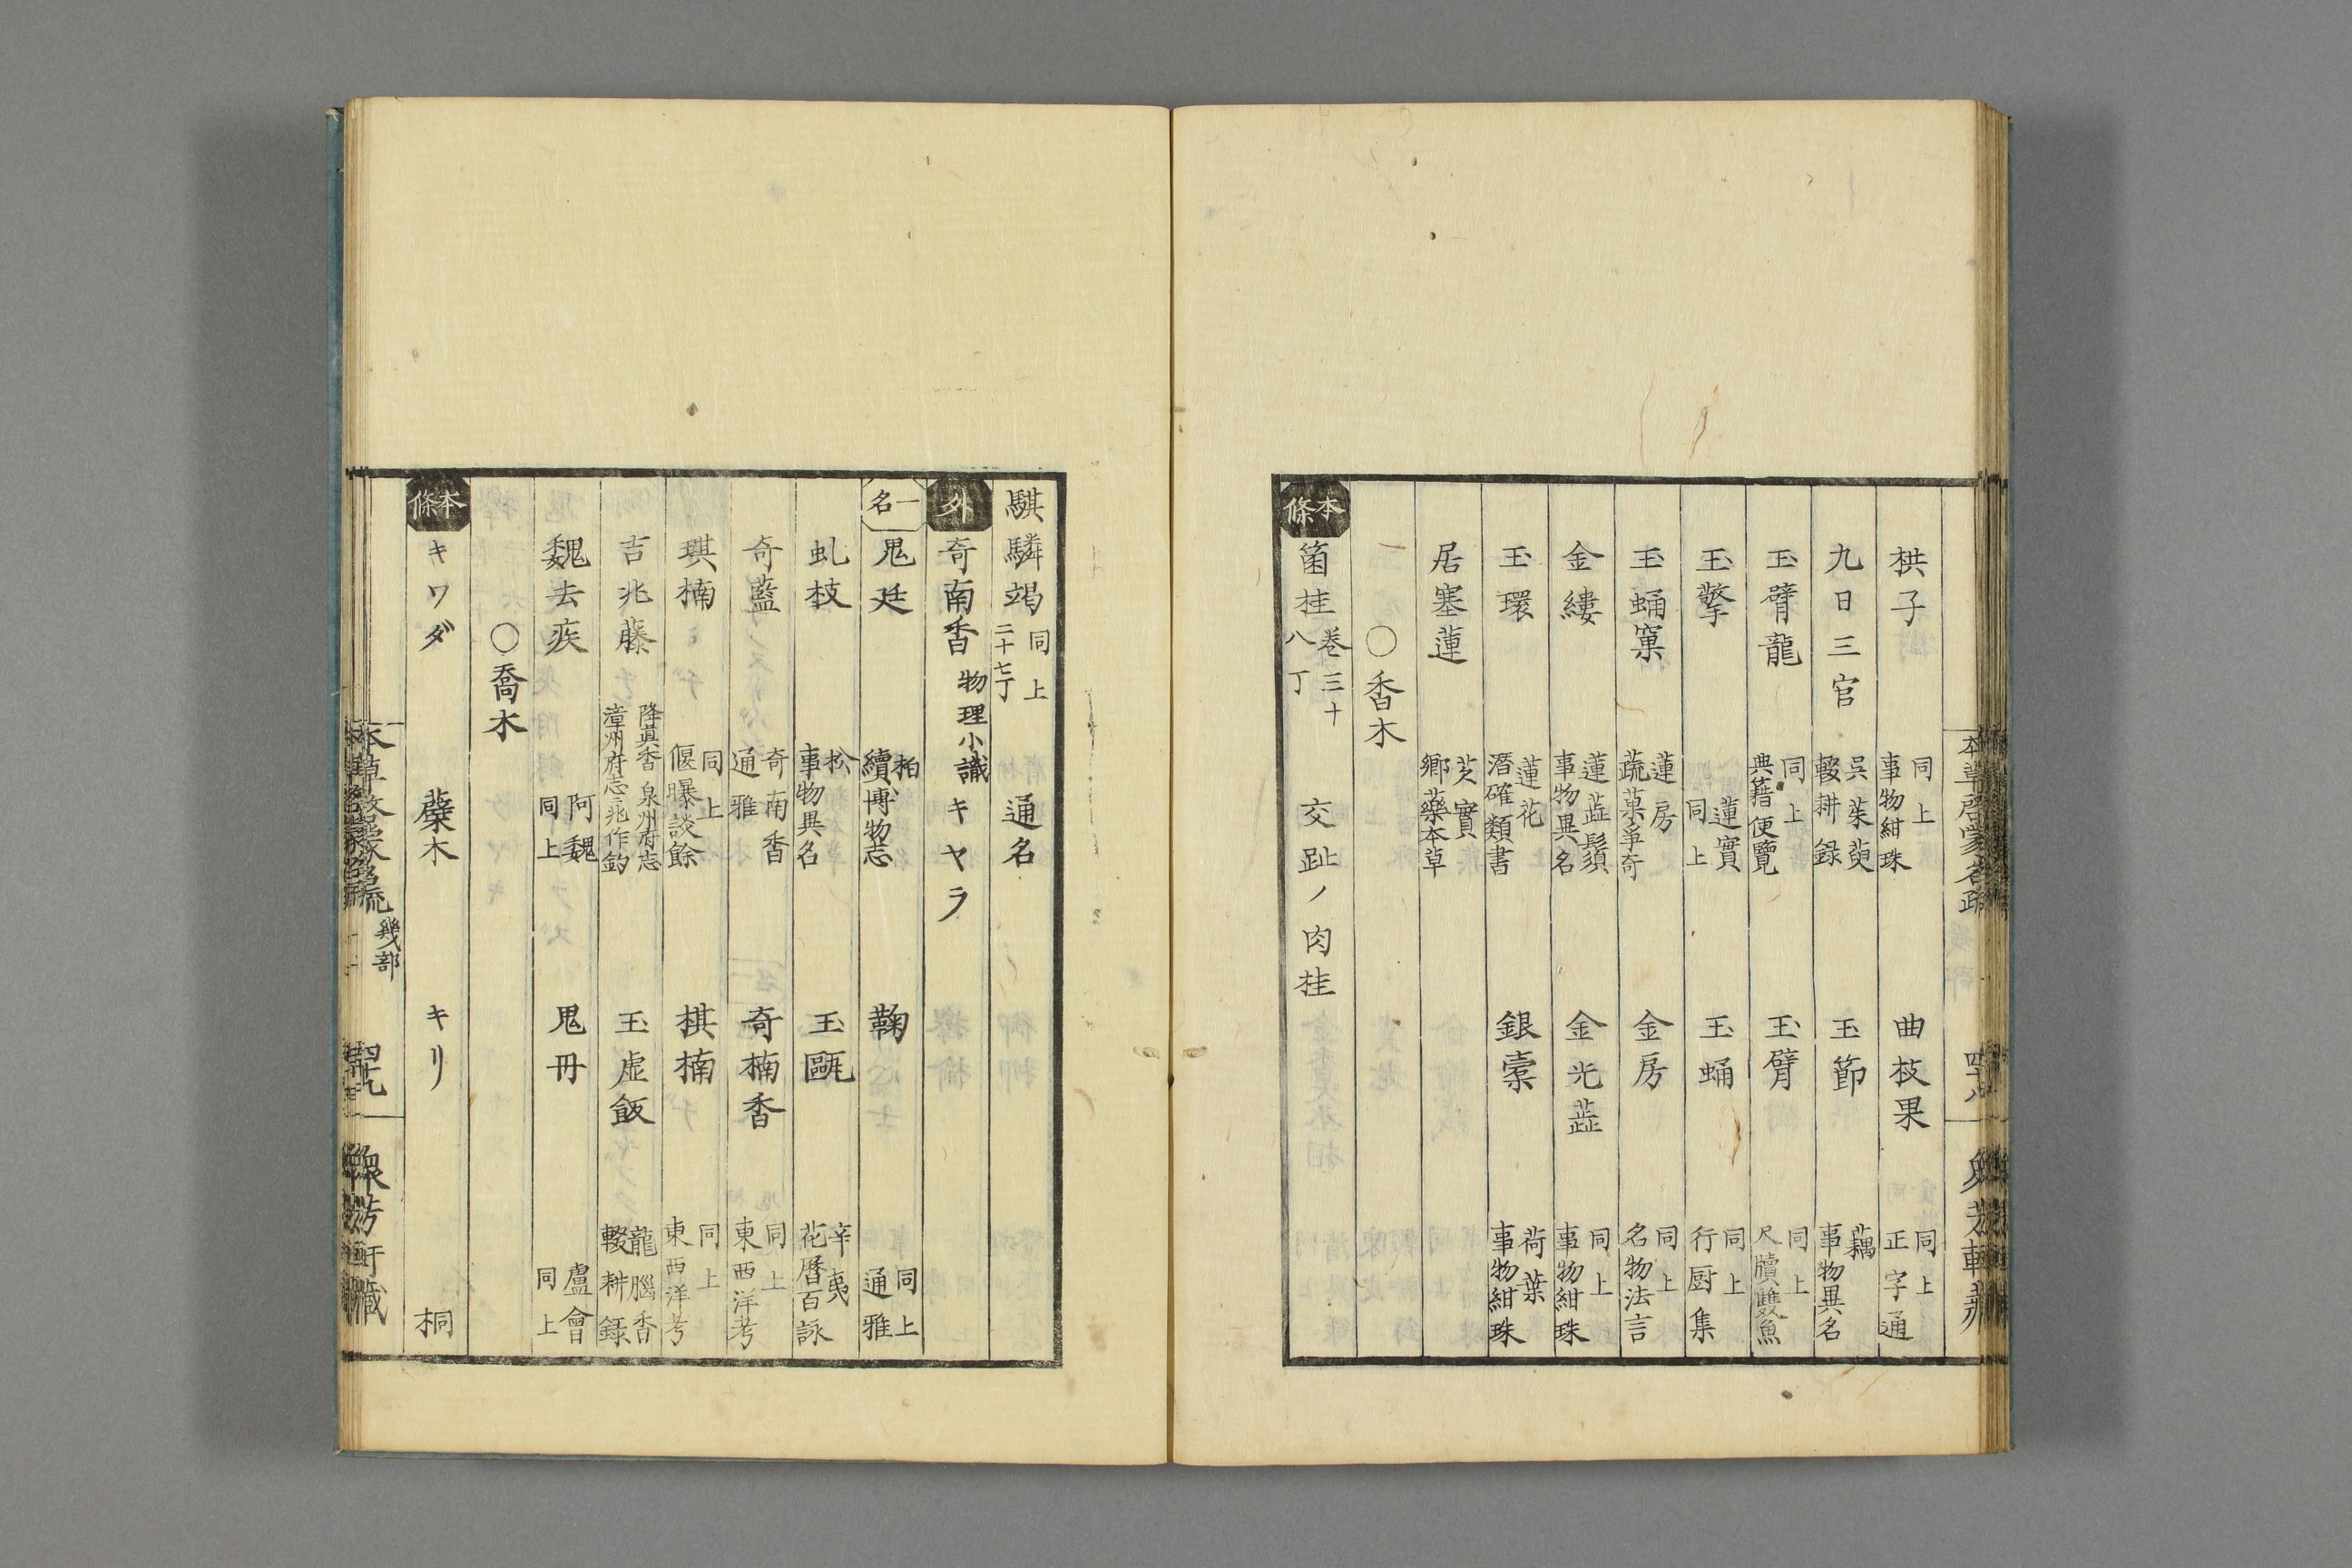 栱子 同上 事物紺珠 曲枝果 同上 正字通
九日三官 呉茱萸 輟耕録 玉節 藕 事物異名
玉臂龍 同上 典籍便覽 玉臂 同上 尺牘雙魚
玉擎 蓮實 同上 玉蛹 同上 行厨集
玉蛹窠 蓮房 蔬菓爭奇 金房 同上 名物法言
金縷 蓮蕋鬚 事物異名 金光蕋 同上 事物紺珠
玉環 蓮花 潛確類書 銀 荷葉 事物紺珠
居塞蓮 芡實 郷藥本草
〇香木
本條 箘桂 卷三十 八丁 交趾ノ肉桂
騏驎竭 同上 二十七丁 通名
外 奇南香 物理小識 キヤラ
一名 鬼廷 柏 續博物志 鞠 同上 通雅
虬枝 松 事物異名 玉甌 辛夷 花曆百詠
奇藍 奇南香 通雅 奇楠香 同上 東西洋考
琪楠 同上 偃曝談餘 棋楠 同上 東西洋考
吉兆藤 降眞香 泉州府志 漳州府志兆作釣 玉虛飯 龍腦香 輟耕録
魏去疾 阿魏 同上 鬼冊 盧會 同上
〇喬木
本條 キワダ 蘗木 キリ 桐
本草啓蒙名疏 幾部